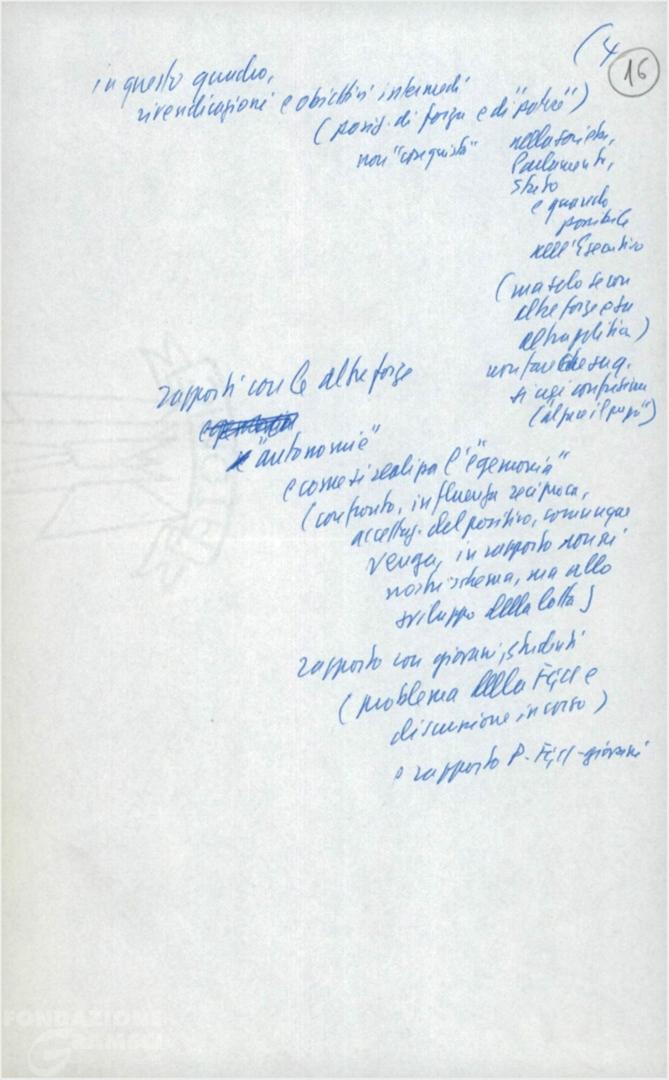 (4
16
in questo quadro,
rivendicazioni e obiettivi intermedi
(posiz. di forza e di "potere")
non "conquista"
nella società,
Parlamenti,
Stato
e quando
possibile
nell'Esecutivo
(ma solo se con
altre forze e su
altra politica)
non fare che
si agi
rapporti con le altre forze
"autonomie"
e come si realizza l'"egemonia"
(confronto, influenza reciproca,
accettaz. del positivo, comunque
venga, in rapporto non ai
nostri schema, ma allo
sviluppo della lotta)
rapporto con giovani, studenti
(problema della FGCI e
discussione in corso)
e rapporto P-FGCI-giovani
FONDAZIONE
GRAMSCI